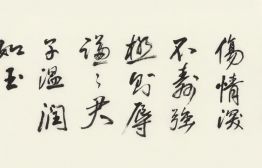 傷情深
不壽強
極則辱
謙謙君
子溫潤
如玉